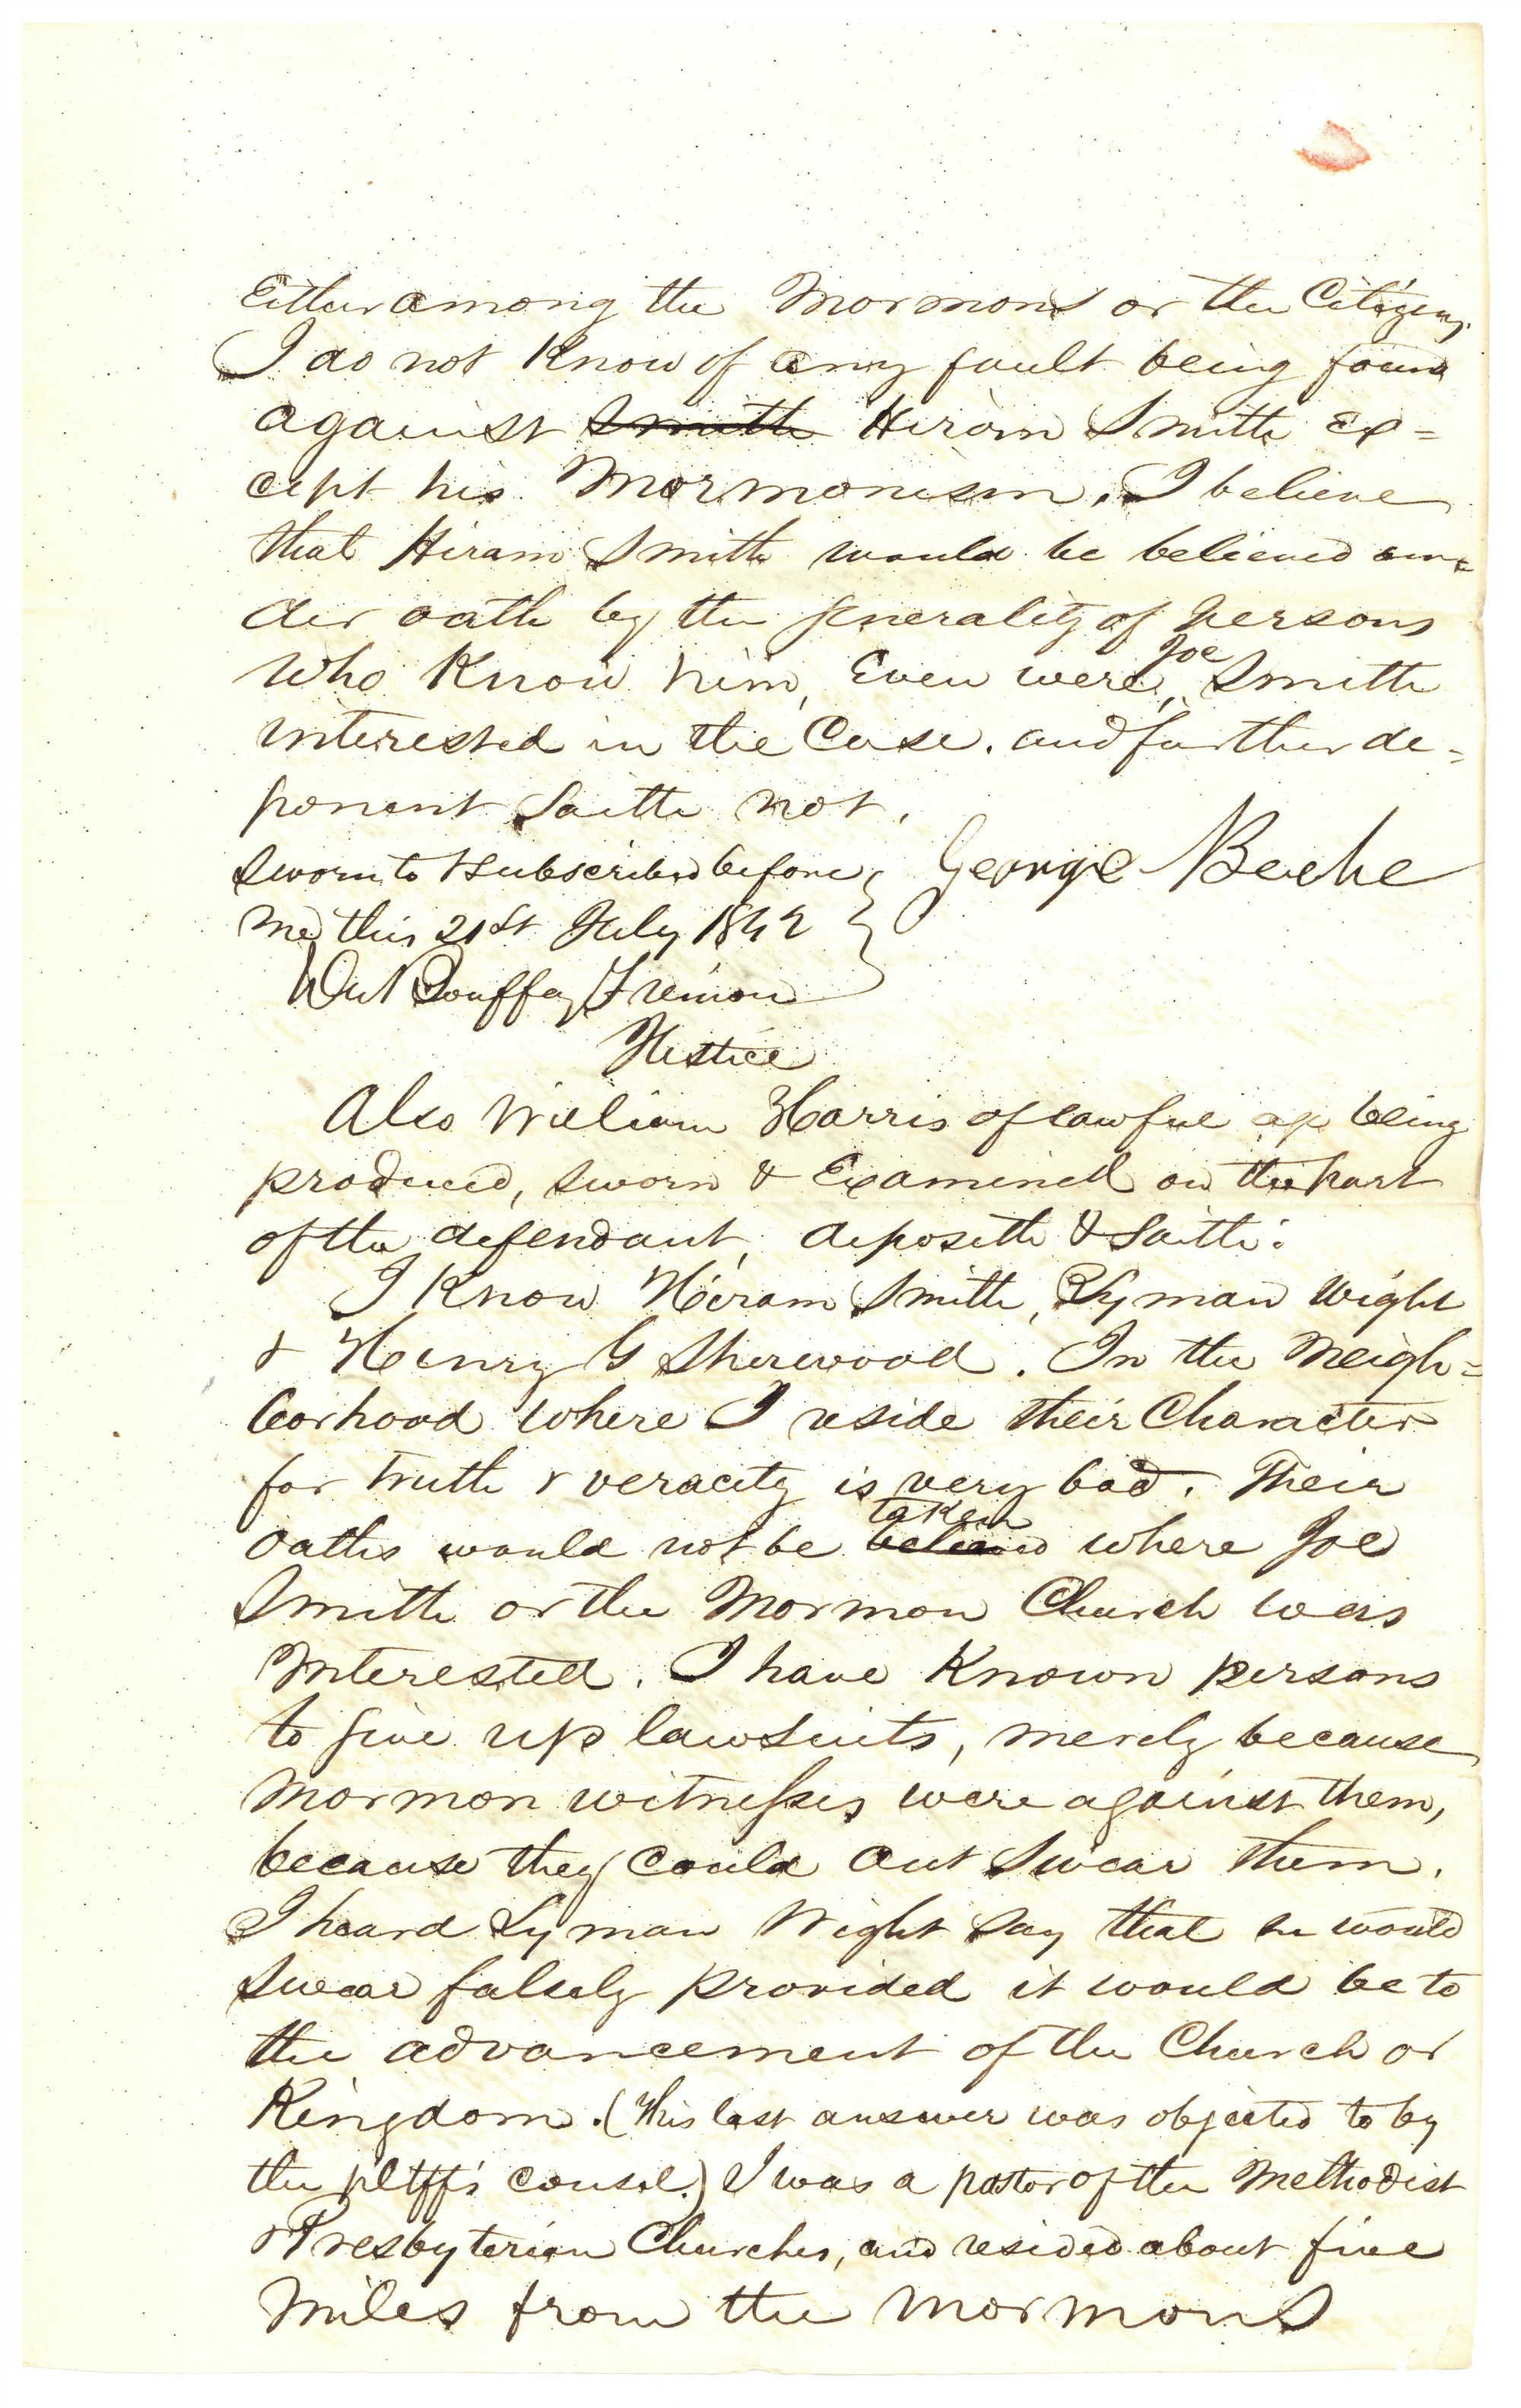 Either among the Mormons or the Citizens.
I do not Know of any fault being found
against Smith Hiram Smith ex=
cept his Mormonism. I believe
that Hiram Smith would be believed un=
der oath by the generality of persons
who Know him, Even were Joe Smith
interested in the Case. and further de=
ponent Saith not.
Sworn to & subscribed before George Beebe
me this 21st July 1842
Justice
Also William Harris of lawful age being
produced, sworn & Examined on the part
of the defendant, deposeth & Saith:
I Know Hiram Smith, Lyman Wight
& Henry G Sherwood. In the Neigh=
borhood where I reside their Character
for truth & veracity is very bad. Their
Oaths would not be believed taken where Joe
Smith or the Mormon Church was
Interested. I have Known persons
to give up lawsuits, merely because
Mormon witnesses were against them,
because they could out Swear them.
I heard Lyman Wight Say that he would
Swear falsely provided it would be to
the advancement of the Church or
Kingdom. (This last answer was objected to by
the pltff's counsel.) I was a pastor of the Methodist
& Presbyterian Churches, and resided about five
Miles from the Mormons